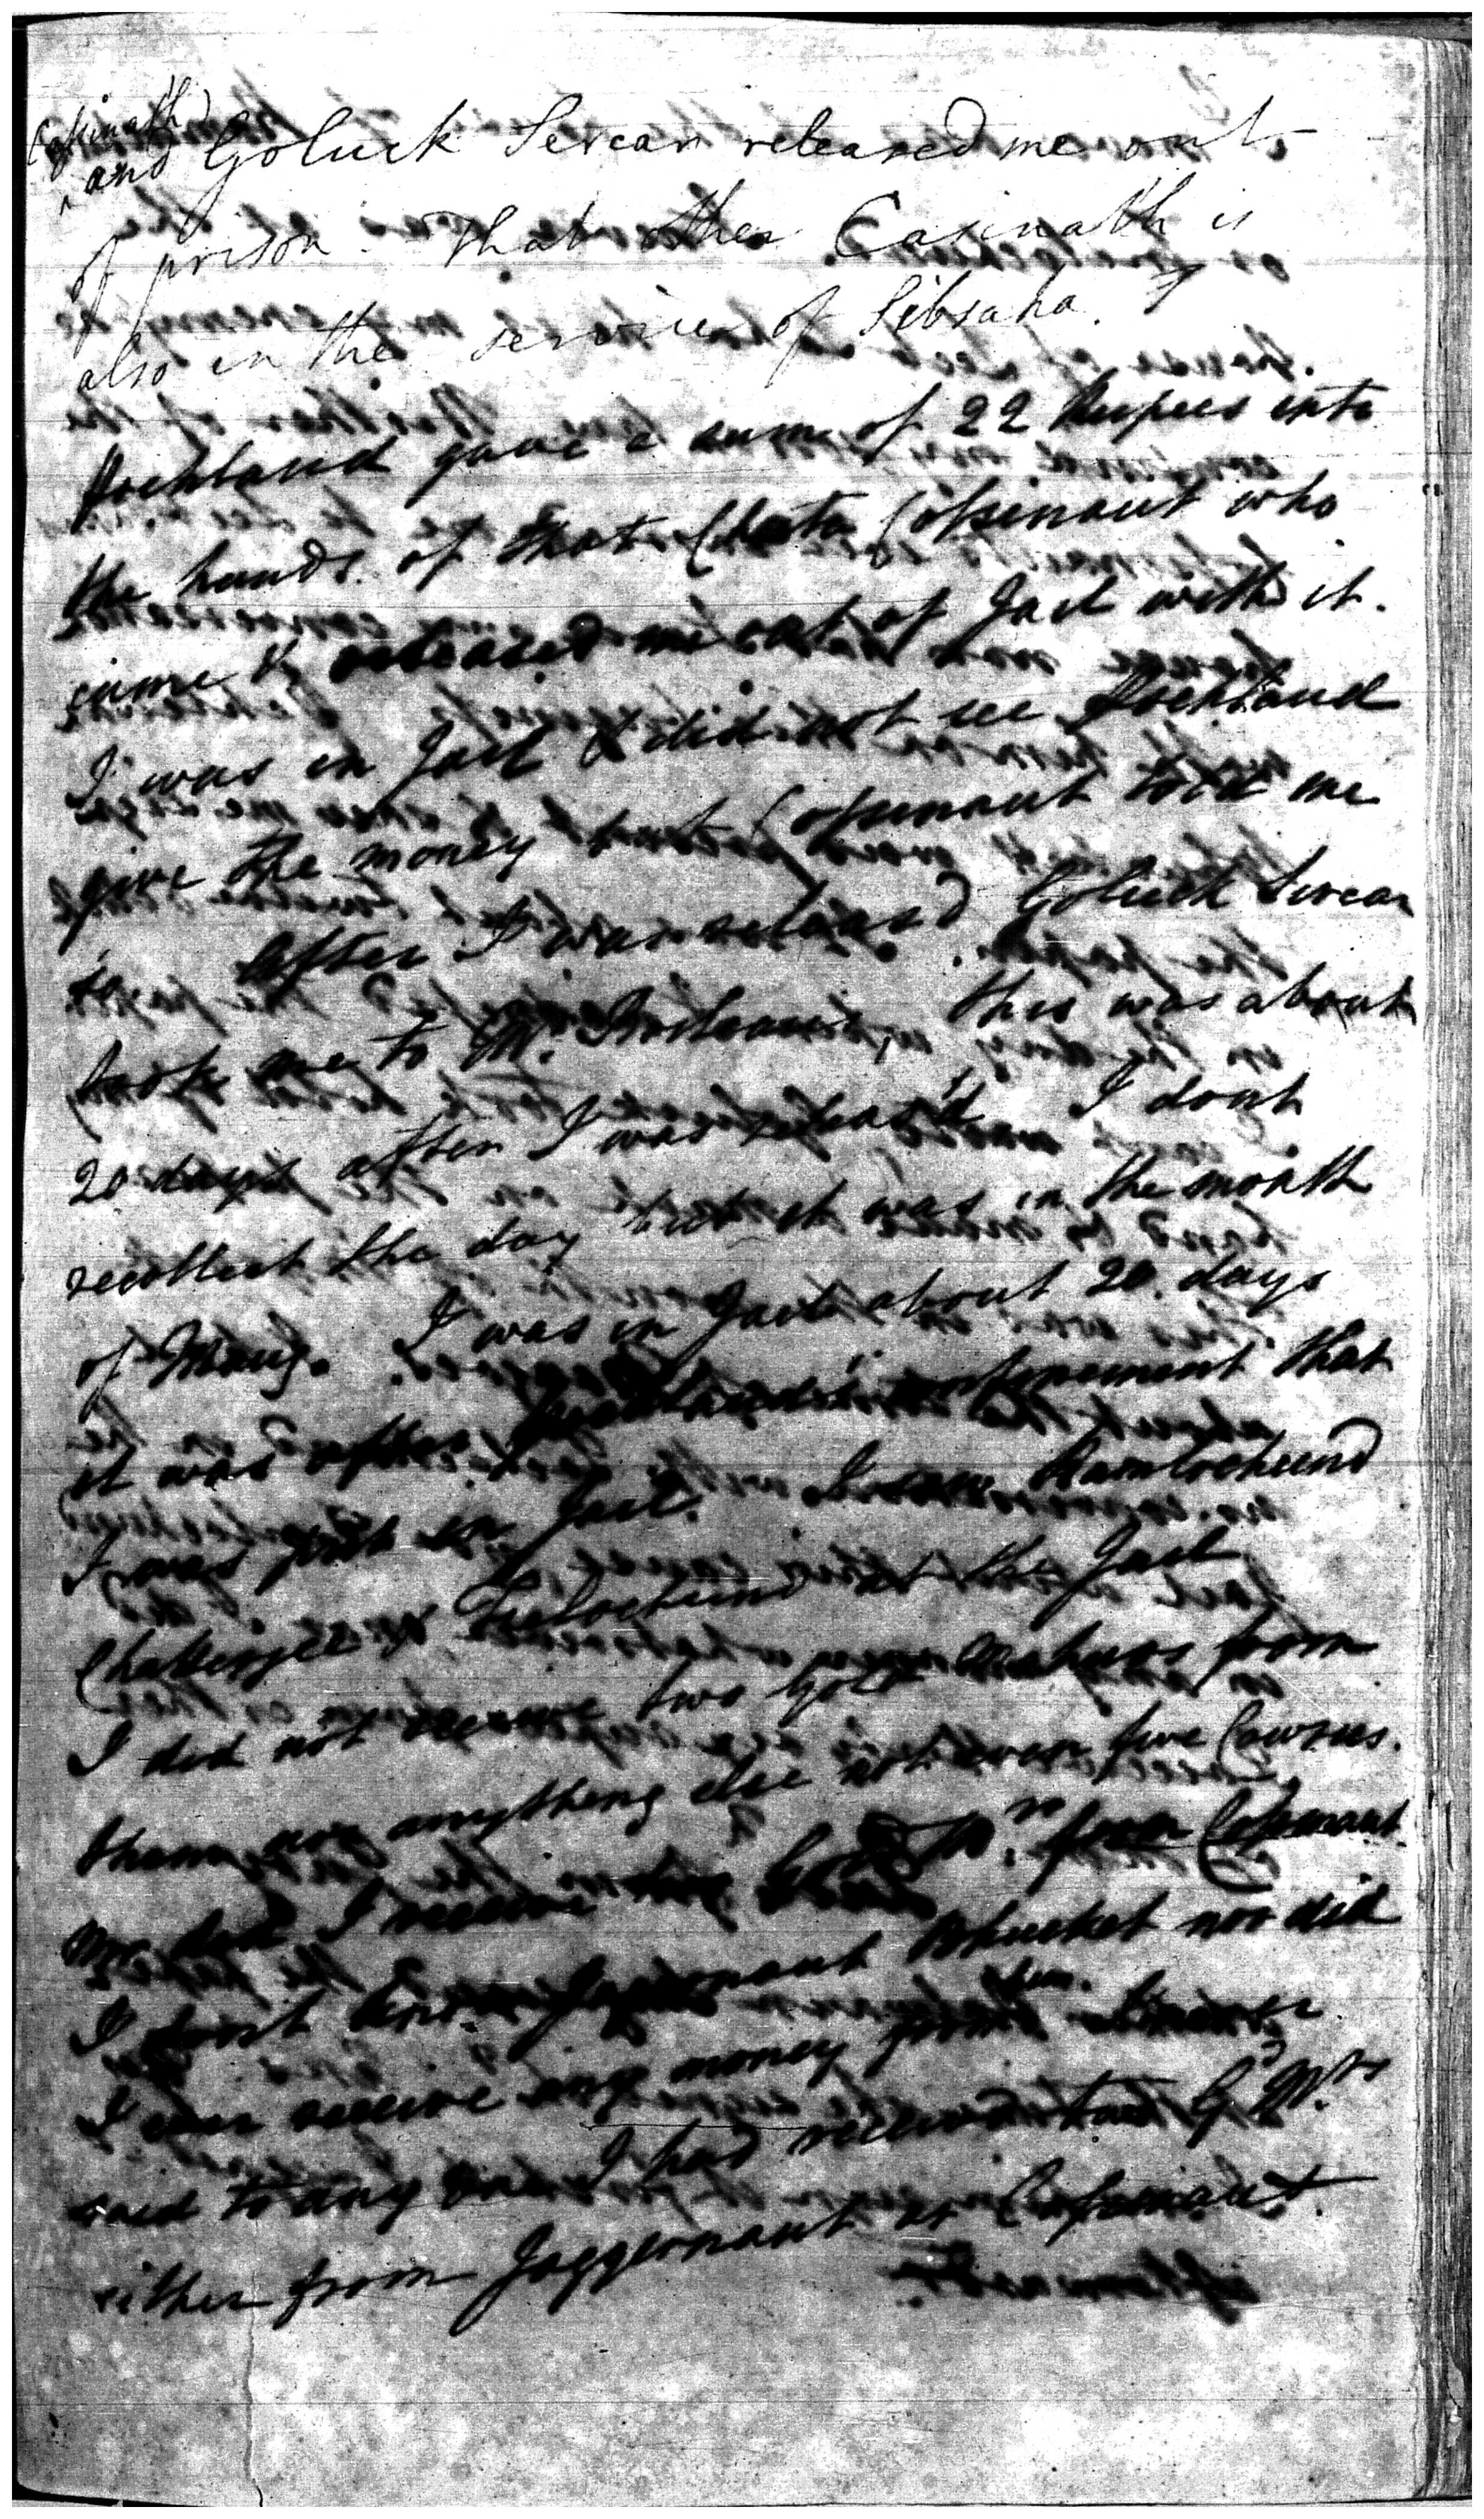 Casinath
and Goluck Sercar released me out
of prison - That other Casinath is
also in the service of Sibsaha.
gave a sum of 22 Rupees into
the hands of that Chota Cossinaut who
came & released me out of Jail with it.
I was in Jail & did not see
give the money but Cossinaut told me
so After I was releas'd Goluck Sircar
took me to Mr. this was about
20 days after I was releas'd I dont
recollect the day but it was in the month
of Maug. I was in Jail about 20 days
it was after confinement that
I was put in Jail. I saw Ramlochund
Chatterjee & at the Jail
I did not receive two Gold Mohurs from
them nor anything else not even five Cowries.
Nor did I receive two Gold Mrs from Cossinaut.
I dont know Jaggernaut nor did
I ever receive any money from him.
said to any one I had received two Gd Mrs
either from Jaggernaut or Cossinaut.